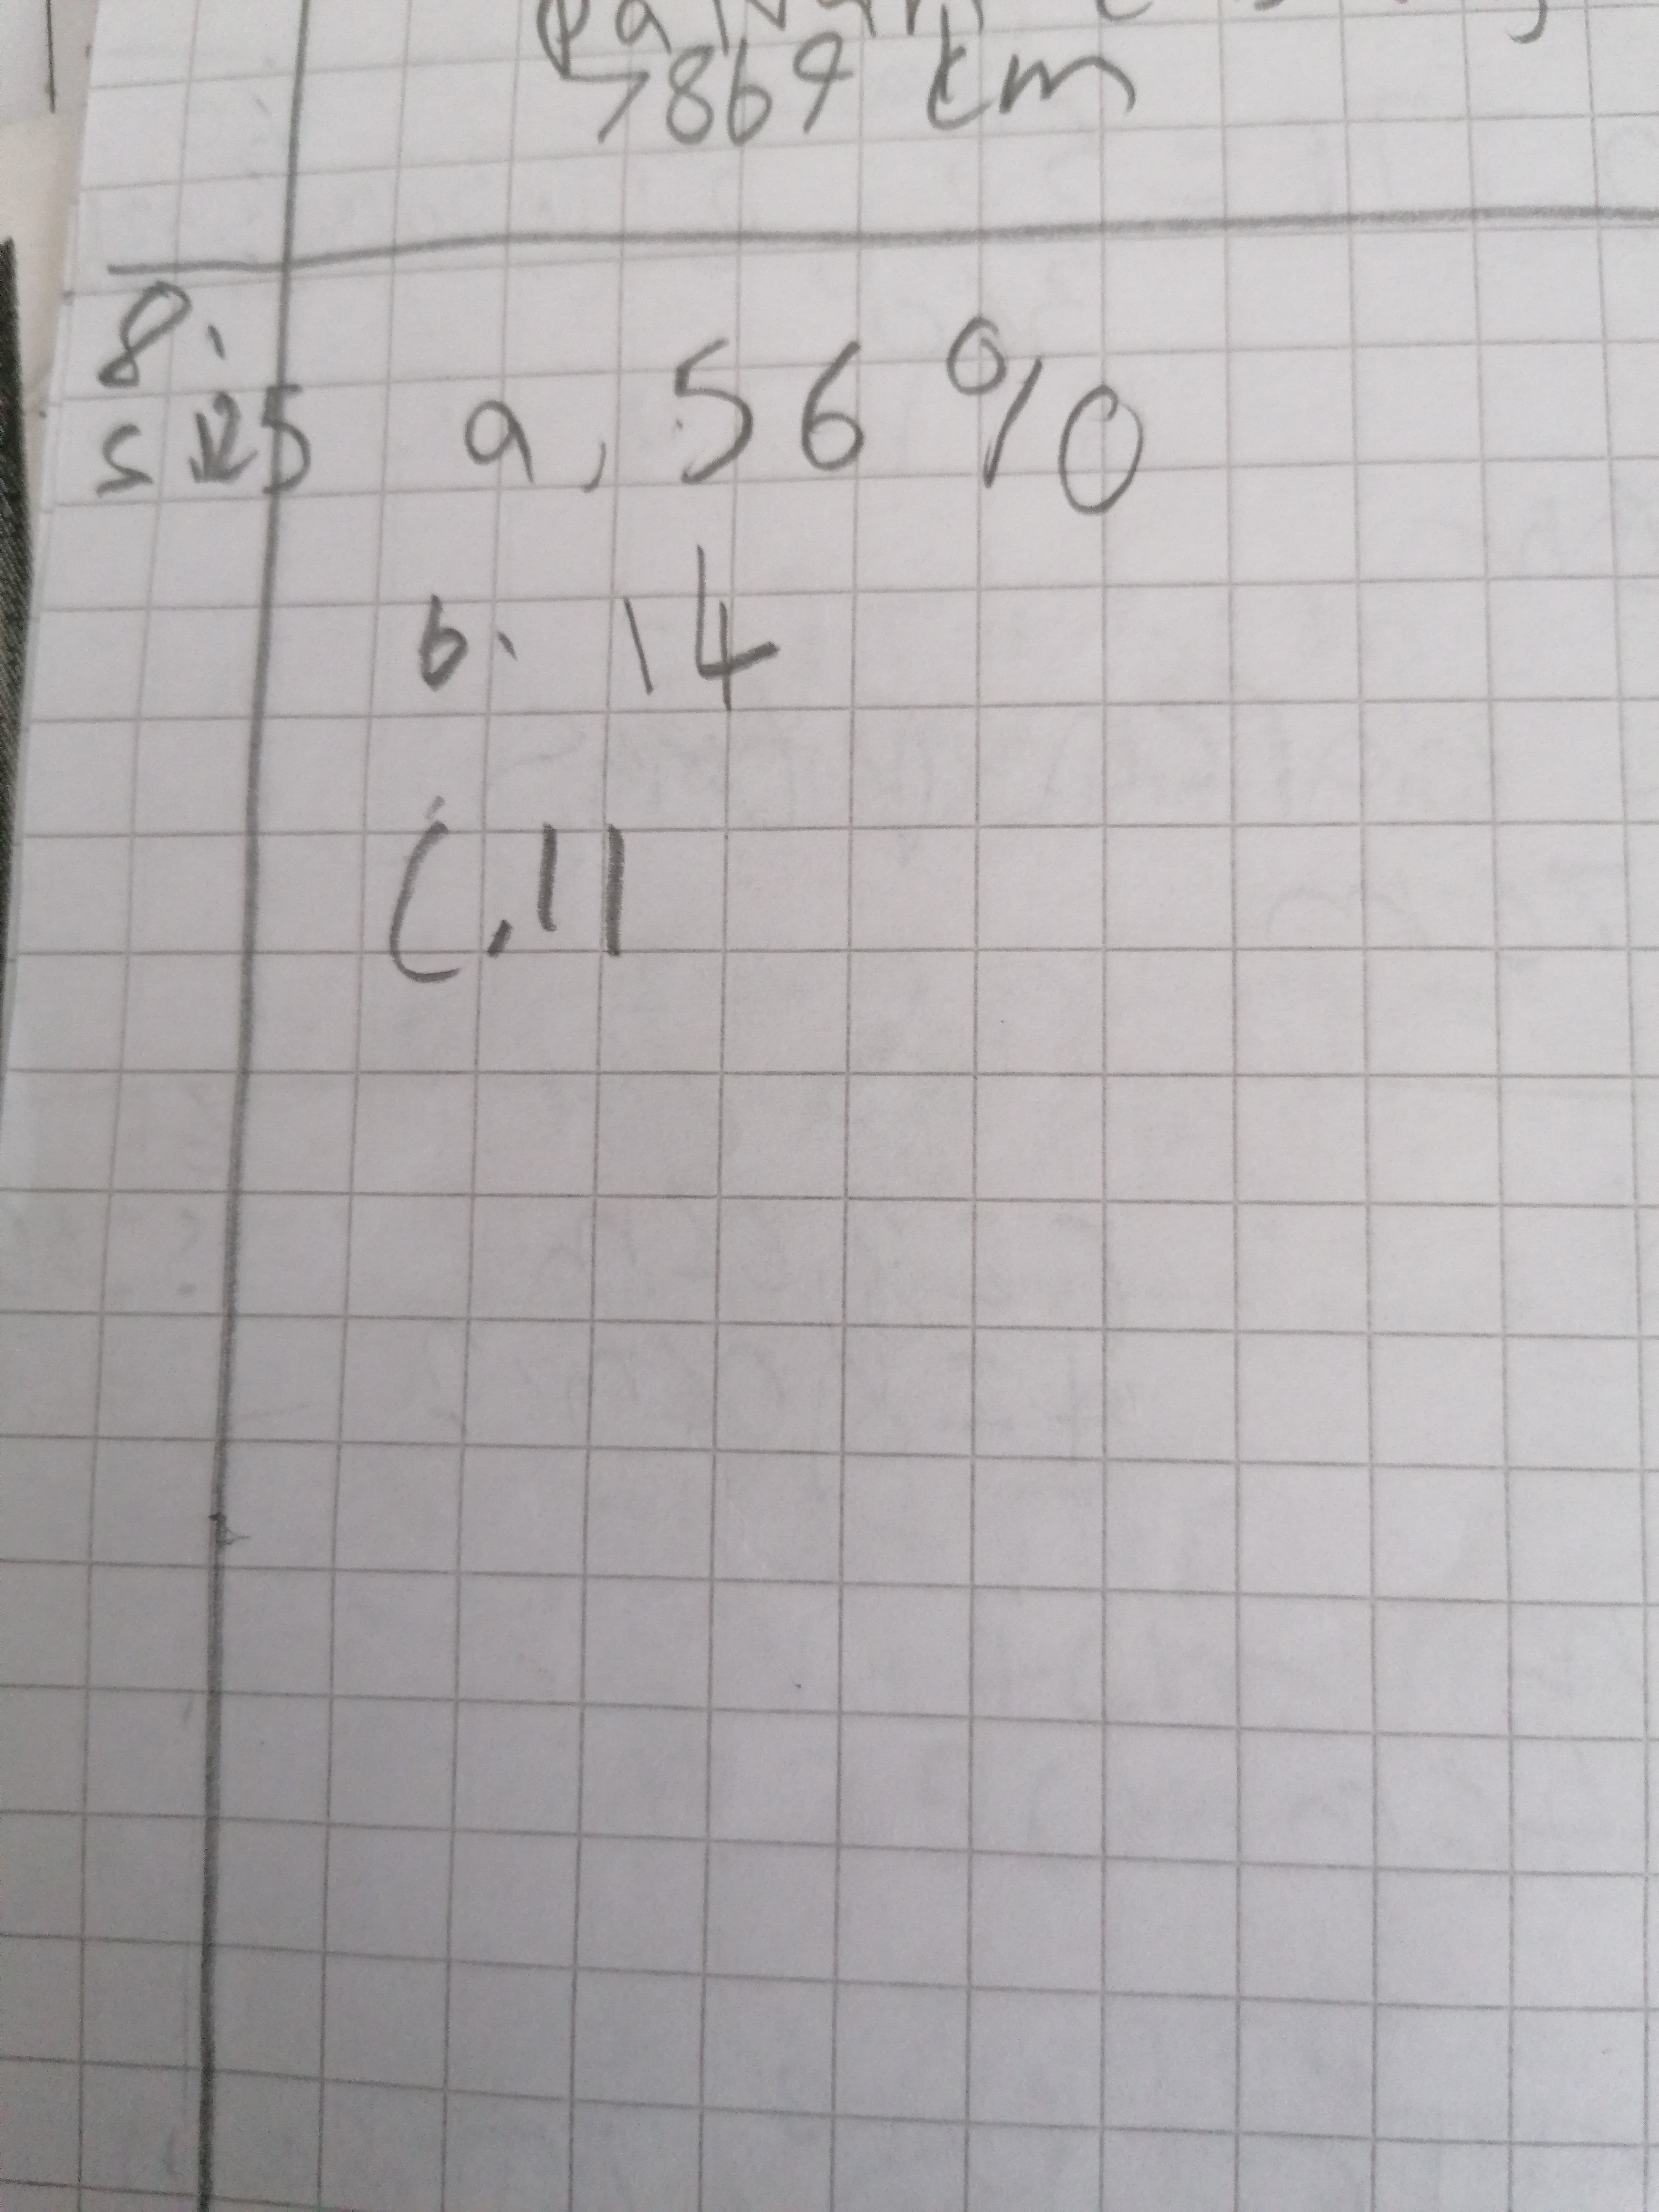 7869 km
8.
s 125 a, 56 %
b. 14
C. 11